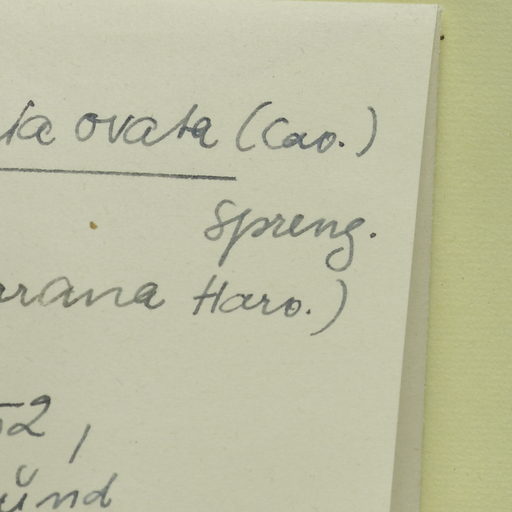 ia ovata (Cav.)
Spreng.
rrana Harv.)
52,
ünd